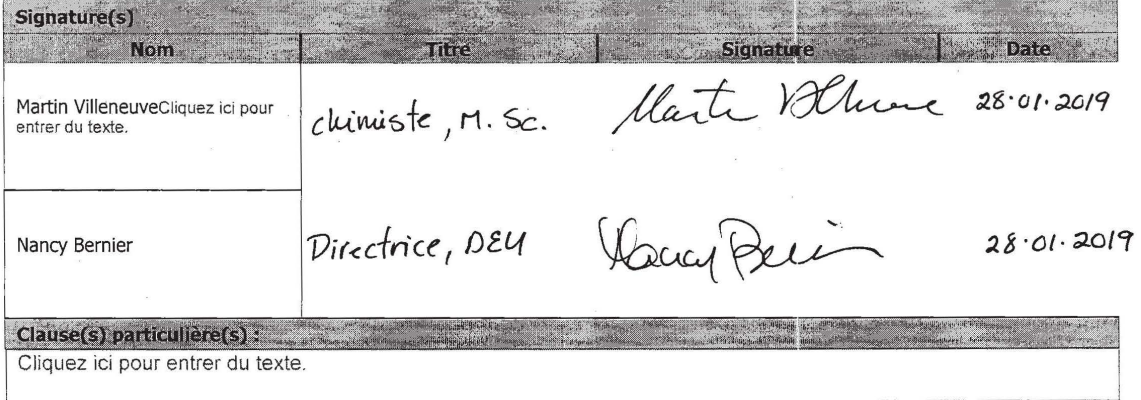 Signature(s)
Nom Titre Signature Date
Martin VilleneuveCliquez ici pour
entrer du texte.
chimiste, M. Sc. 28.01.2019
Nancy Bernier Directrice, DEU Nancy Bernier 28.01.2019
Clause(s) particulière(s) :
Cliquez ici pour entrer du texte.